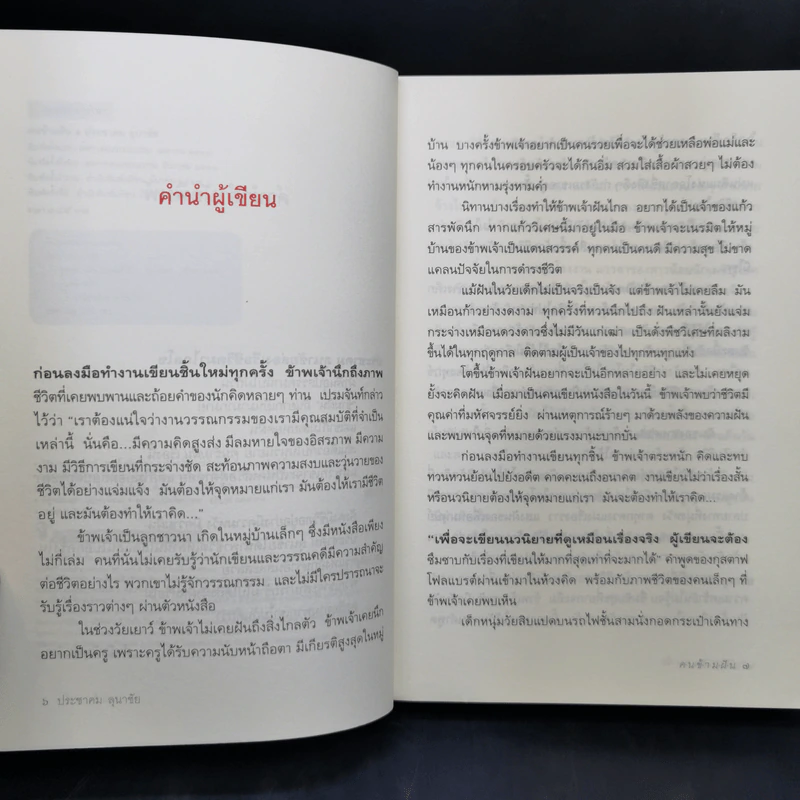 คำนำผู้เขียน
ก่อนลงมือทำงานเขียนชิ้นใหม่ทุกครั้ง ข้าพเจ้านึกถึงภาพ
ชีวิตที่เคยพบพานและถ้อยคำของนักคิดหลายๆ ท่าน เปรมจันท์กล่าว
ไว้ว่า “เราต้องแน่ใจว่างานวรรณกรรมของเรามีคุณสมบัติที่จำเป็น
เหล่านี้ นั่นคือ...มีความคิดสูงส่ง มีลมหายใจของอิสรภาพ มีความ
งาม มีวิธีการเขียนที่กระจ่างชัด สะท้อนภาพความสงบและวุ่นวายของ
ชีวิตได้อย่างแจ่มแจ้ง มันต้องให้จุดหมายแก่เรา มันต้องให้เรามีชีวิต
อยู่ และมันต้องทำให้เราคิด...”
ข้าพเจ้าเป็นลูกชาวนา เกิดในหมู่บ้านเล็กๆ ซึ่งมีหนังสือเพียง
ไม่กี่เล่ม คนที่นั่นไม่เคยรับรู้ว่านักเขียนและวรรณคดีมีความสำคัญ
ต่อชีวิตอย่างไร พวกเขาไม่รู้จักวรรณกรรม และไม่มีใครปรารถนาจะ
รับรู้เรื่องราวต่างๆ ผ่านตัวหนังสือ
ในช่วงวัยเยาว์ ข้าพเจ้าไม่เคยฝันถึงสิ่งไกลตัว ข้าพเจ้าเคยนึก
อยากเป็นครู เพราะครูได้รับความนับหน้าถือตา มีเกียรติสูงสุดในหมู่
๖ ประชาคม ลุนาชัย
บ้าน บางครั้งข้าพเจ้าอยากเป็นคนรวยเพื่อจะได้ช่วยเหลือพ่อแม่และ
น้องๆ ทุกคนในครอบครัวจะได้กินอิ่ม สวมใส่เสื้อผ้าสวยๆ ไม่ต้อง
ทำงานหนักหามรุ่งหามค่ำ
นิทานบางเรื่องทำให้ข้าพเจ้าฝันไกล อยากได้เป็นเจ้าของแก้ว
สารพัดนึก หากแก้ววิเศษนี้มาอยู่ในมือ ข้าพเจ้าจะเนรมิตให้หมู่
บ้านของข้าพเจ้าเป็นแดนสวรรค์ ทุกคนเป็นคนดี มีความสุข ไม่ขาด
แคลนปัจจัยในการดำรงชีวิต
แม้ฝันในวัยเด็กไม่เป็นจริงเป็นจัง แต่ข้าพเจ้าไม่เคยลืม มัน
เหมือนก้าวย่างงดงาม ทุกครั้งที่หวนนึกไปถึง ฝันเหล่านั้นยังแจ่ม
กระจ่างเหมือนดวงดาวซึ่งไม่มีวันแก่เฒ่า เป็นดั่งพืชวิเศษที่ผลิงาม
ขึ้นได้ในทุกฤดูกาล ติดตามผู้เป็นเจ้าของไปทุกหนทุกแห่ง
โตขึ้นข้าพเจ้าฝันอยากจะเป็นอีกหลายอย่าง และไม่เคยหยุด
ยั้งจะคิดฝัน เมื่อมาเป็นคนเขียนหนังสือในวันนี้ ข้าพเจ้าพบว่าชีวิตมี
คุณค่าที่มหัศจรรย์ยิ่ง ผ่านเหตุการณ์ร้ายๆ มาด้วยพลังของความฝัน
และพบพานจุดที่หมายด้วยแรงมานะบากบั่น
ก่อนลงมือทำงานเขียนทุกชิ้น ข้าพเจ้าตระหนัก คิดและทบ
ทวนหวนย้อนไปยังอดีต คาดคะเนถึงอนาคต งานเขียนไม่ว่าเรื่องสั้น
หรือนวนิยายต้องให้จุดหมายแก่เรา มันจะต้องทำให้เราคิด...
“เพื่อจะเขียนนวนิยายที่ดูเหมือนเรื่องจริง ผู้เขียนจะต้อง
ซึมซาบกับเรื่องที่เขียนให้มากที่สุดเท่าที่จะมากได้” คำพูดของกุสตาฟ
โฟลแบรต์ผ่านเข้ามาในห้วงคิด พร้อมกับภาพชีวิตของคนเล็กๆ ที่
ข้าพเจ้าเคยพบเห็น
เด็กหนุ่มวัยสิบแปดบนรถไฟชั้นสามนั่งกอดกระเป๋าเดินทาง
คนข้ามฝัน ๗